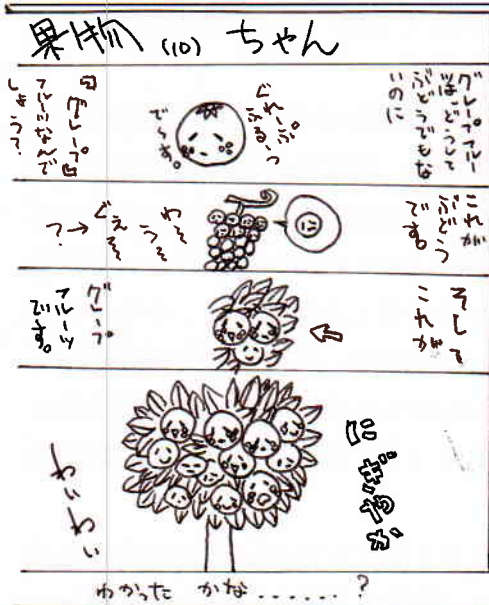 果物(10)ちゃん
グレープフルー
ツは、どうして
ぶどうでもな
いのに
ぐれーぷ
ふるーつ
でーす。
『グレープ』
フルーツなんで
しょう?
これが
ぶどう
です。
わー
うー
ぐぇー
→?
そして
これが
グレープ
フルーツ
でーす。
にぎやか
わいわい
わかった かな.......?